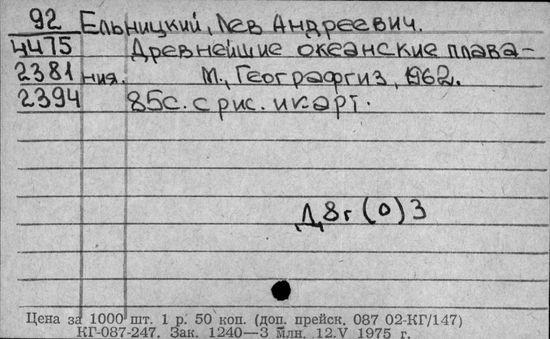 92 Ельницкий, Лев Андреевич.
4475 Древнейшие океанские плава-
2381 ния. М., Географгиз, 1962.
2394 85с. с рис. и карт.
Д8г(0)3
Цена за 1000 шт. 1 р. 50 коп. (доп. прейск. 087 02-КГ/147)
КГ-087-247. Зак. 1240—3 млн. 12.V 1975 г.